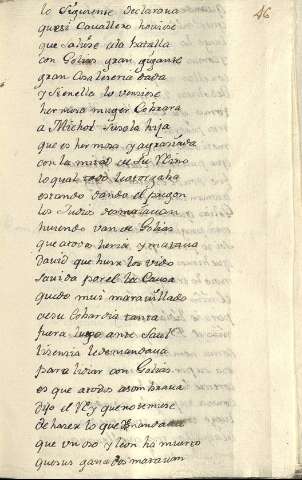 46
lo siguiente declarava
que si Cavallero huviese
que saliese ala batalla
con Golias gran gigante
gran Cosa leseria dada
y sienella lo venciese
hermosa muger Cobrara
a Michol su sola hija
que es hermosa y agraciada
con la mitad de su Reino
lo qual todo leotorgaba
estando dando el pregon
los Judios desmaiavan
huiendo van de Golias
que atodos heria y matava
David que huir los vido
savida por el la Causa
quedo mui maravillado
de su Cobardia tanta
fuera luego ante Saul
licencia le demandava
para lidiar con Golias
es que atodos asombrava
dijo el Rey que no temiese
de hazer lo que demanda
que un oso y leon ha muerto
que sus ganados matavan